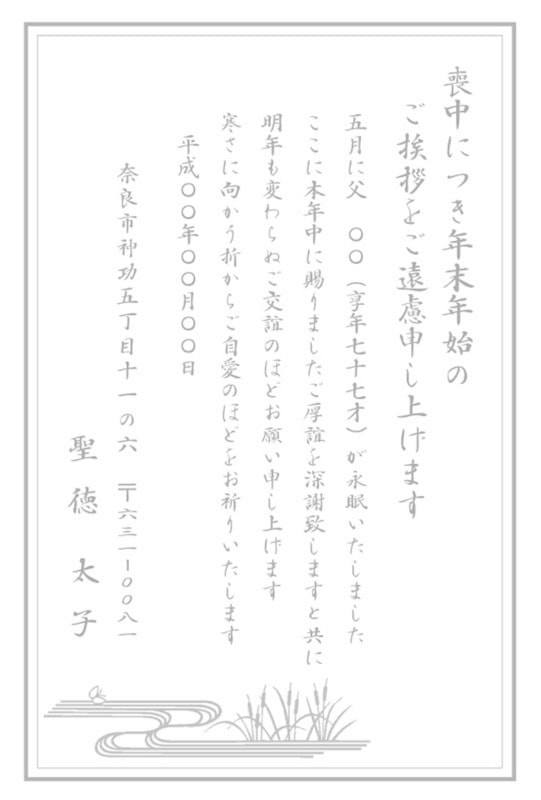 喪中につき年末年始の
ご挨拶をご遠慮申し上げます
五月に父 〇〇（享年七十七才）が永眠いたしました
ここに本年中に賜りましたご厚誼を深謝致しますと共に
明年も変わらぬご交誼のほどお願い申し上げます
寒さに向かう折からご自愛のほどをお祈りいたします
平成〇〇年〇〇月〇〇日
奈良市神功五丁目十一の六 〒六三一-〇〇八一
聖徳 太子